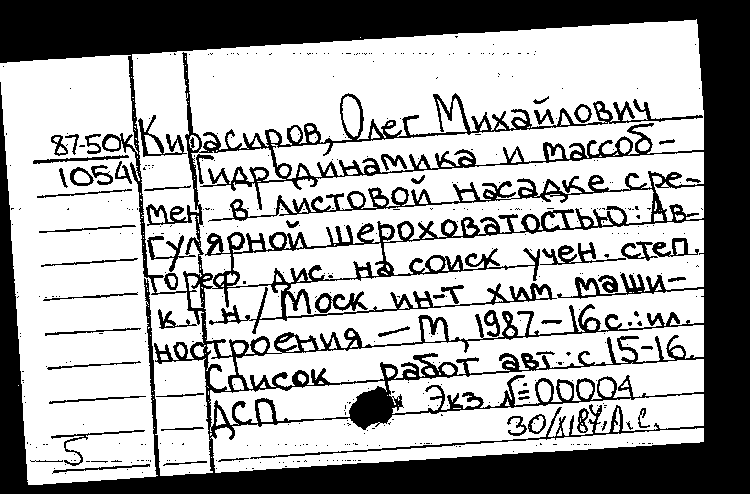 87-50к Кирасиров, Олег Михайлович
10541 Гидродинамика и массоб-
мен в листовой насадке с ре-
гулярной шероховатостью: Ав-
тореф. дис. на соиск. учен. степ.
к.т.н. / Моск. ин-т хим. маши-
ностроения. — М., 1987. — 16 с.: ил.
Список работ авт.: с. 15-16.
ДСП. Экз. № 00004.
30/XI87. А.С.
5